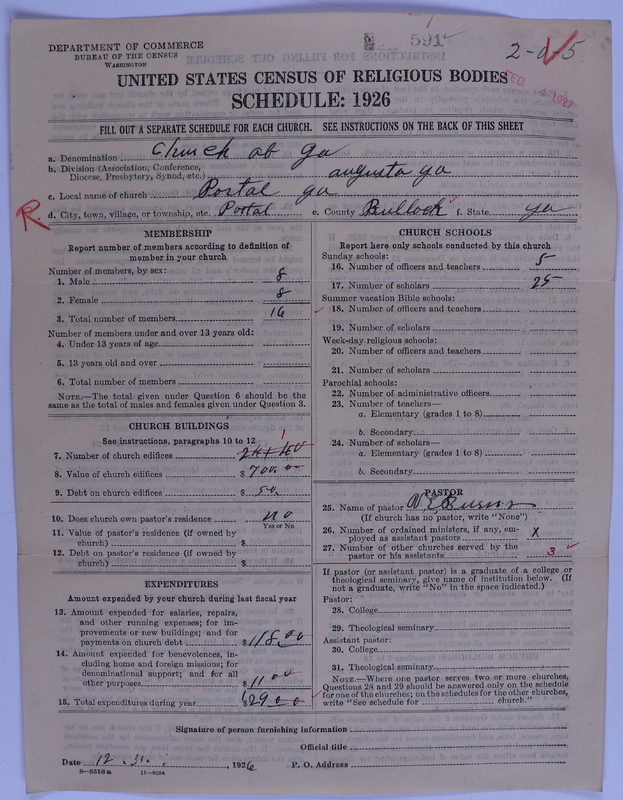 591
2-0-5
DEPARTMENT OF COMMERCE
BUREAU OF THE CENSUS
WASHINGTON
FEB 1927
UNITED STATES CENSUS OF RELIGIOUS BODIES
SCHEDULE: 1926
FILL OUT A SEPARATE SCHEDULE FOR EACH CHURCH. SEE INSTRUCTIONS ON THE BACK OF THIS SHEET
a. Denomination Church
b. Division (Association, Conference, Diocese, Presbytery, Synod, etc.) augusta ga
c. Local name of church Portal ga
R. d. City, town, village, or township, etc. Portal e. County Bullock f. State ga
MEMBERSHIP
Report number of members according to definition of
member in your church
Number of members, by sex:
1. Male 8
2. Female 8
3. Total number of members 16
Number of members under and over 13 years old:
4. Under 13 years of age
5. 13 years old and over
6. Total number of members
NOTE.—The total given under Question 6 should be
same as the total of males and females given under Question 3.
CHURCH BUILDINGS
See instructions, paragraphs 10 to 12
7. Number of church edifices 1 24x40
8. Value of church edifices $700.00
9. Debt on church edifices $50.
10. Does church own pastor's residence no
Yes or No
11. Value of pastor's residence (if owned by
church) $
12. Debt on pastor's residence (if owned by
church) $
EXPENDITURES
Amount expended by your church during last fiscal year
13. Amount expended for salaries, repairs,
and other running expenses; for im-
provements or new buildings; and for
payments on church debt $118.00
14. Amount expended for benevolences, in-
cluding home and foreign missions; for
denominational support; and for all
other purposes $11.00
15. Total expenditures during year $
CHURCH SCHOOLS
Report here only schools conducted by this church
Sunday schools:
16. Number of officers and teachers 5
17. Number of scholars 25
Summer vacation Bible schools:
18. Number of officers and teachers
19. Number of scholars
Week-day religious schools:
20. Number of officers and teachers
21. Number of scholars
Parochial schools:
22. Number of administrative officers
23. Number of teachers—
a. Elementary (grades 1 to 8)
b. Secondary
24. Number of scholars—
a. Elementary (grades 1 to 8)
b. Secondary
PASTOR
25. Name of pastor
(If church has no pastor, write "None")
26. Number of ordained ministers, if any, em-
ployed as assistant pastors X
27. Number of other churches served by the
pastor or his assistants 3
If pastor (or assistant pastor) is a graduate of a college or
theological seminary, give name of institution below. (If
not a graduate, write "No" in the space indicated.)
Pastor:
28. College
29. Theological seminary
Assistant pastor:
30. College
31. Theological seminary
NOTE.—Where one pastor serves two or more churches,
Questions 28 and 29 should be answered only on the schedule
for one of the churches; on the schedules for the other churches,
write "See schedule for church."
Signature of person furnishing information
Official title
Date 12 , 1926 P. O. Address
9—5518 a 11—9164